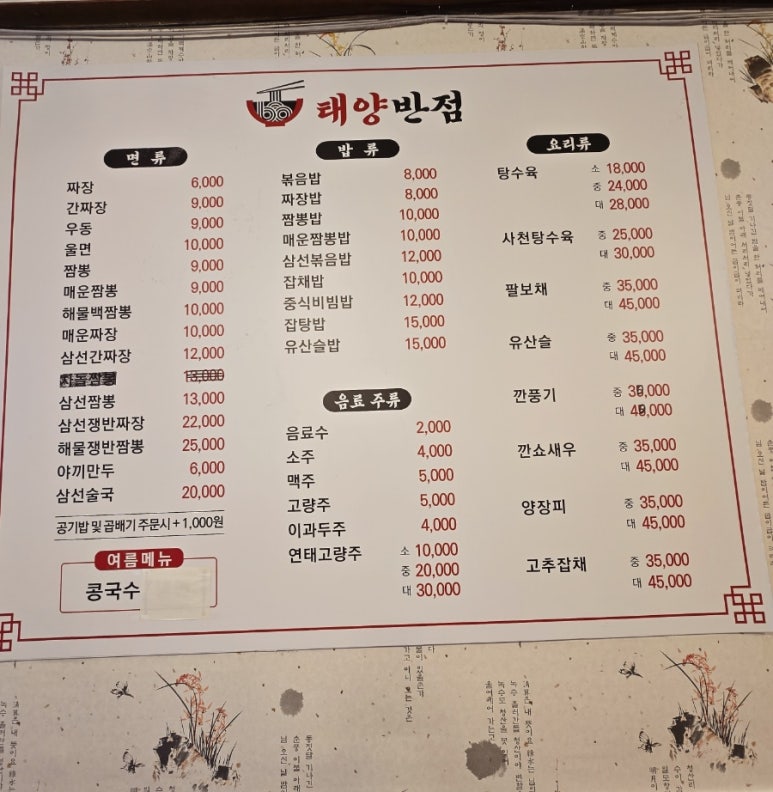 태양반점
면 류
짜장 6,000
간짜장 9,000
우동 9,000
울면 10,000
짬뽕 9,000
매운짬뽕 9,000
해물백짬뽕 10,000
매운짜장 10,000
삼선간짜장 12,000
13,000
삼선짬뽕 13,000
삼선쟁반짜장 22,000
해물쟁반짬뽕 25,000
야끼만두 6,000
삼선술국 20,000
공기밥 및 곱배기 주문시 + 1,000원
여름메뉴
콩국수
밥 류
볶음밥 8,000
짜장밥 8,000
짬뽕밥 10,000
매운짬뽕밥 10,000
삼선볶음밥 12,000
잡채밥 10,000
중식비빔밥 12,000
잡탕밥 15,000
유산슬밥 15,000
음료 주류
음료수 2,000
소주 4,000
맥주 5,000
고량주 5,000
이과두주 4,000
연태고량주 소 10,000
중 20,000
대 30,000
요리류
탕수육 소 18,000
중 24,000
대 28,000
사천탕수육 중 25,000
대 30,000
팔보채 중 35,000
대 45,000
유산슬 중 35,000
대 45,000
깐풍기 중
대
깐쇼새우 중 35,000
대 45,000
양장피 중 35,000
대 45,000
고추잡채 중 35,000
대 45,000